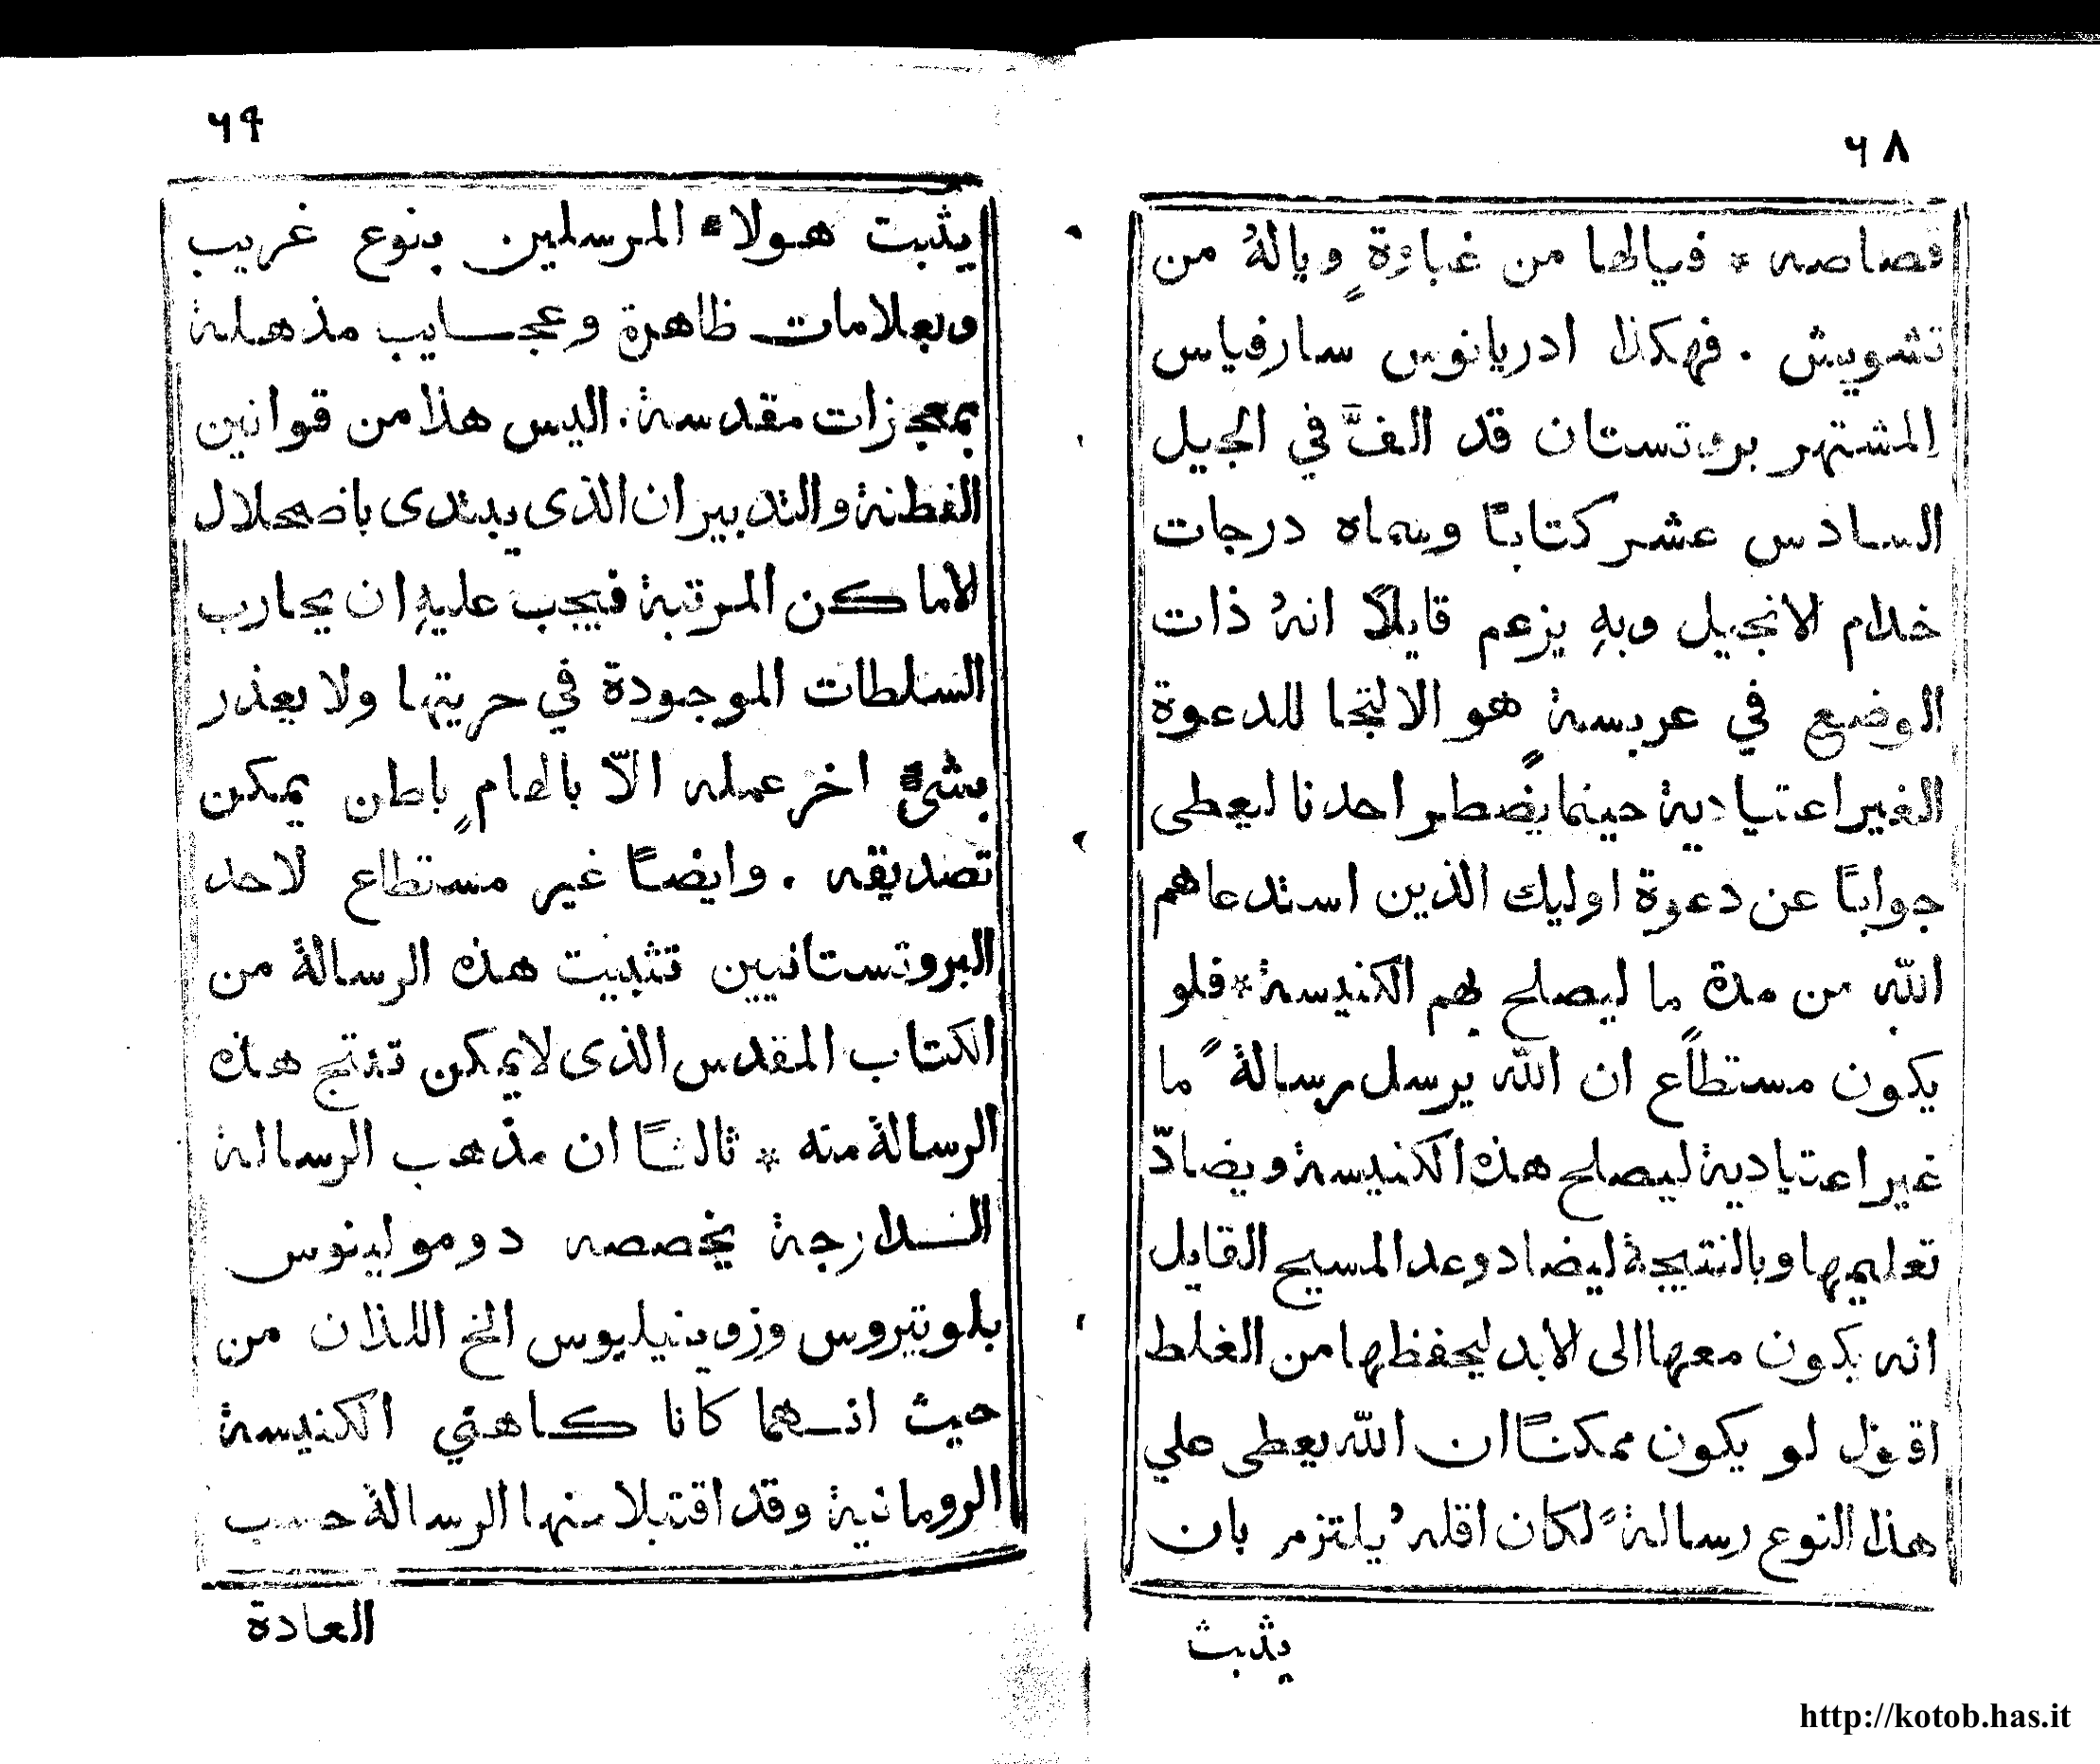 ٦٨
قصاصه * فيالها من غباؤةٍ ويالهُ من
تشويش . فهكذا ادريانوس سارفياس
المشتهر بروتستان قد الفَّ في الجيل
السادس عشر كتابًا وسماه درجات
خدام الانجيل وبهِ يزعم قايلاً انهُ ذات
الوضع في عربسةٍ هو الالتجا للدعوة
الغير اعتيادية حينما يضطر احدنا ليعطى
جوابًا عن دعوة اوليك الذين استدعاهم
الله من مدة ما ليصلح بهم الكنيسة * فلو
يكون مستطاعًا ان الله يرسل رسالةً ما
غير اعتيادية ليصلح هذه الكنيسة ويضادّ
تعليمها وبالنتيجة ليضاد وعد المسيح القايل
انه يكون معها الى الابد ليحفظها من الغلط
اقول لو يكون ممكنًا ان الله يعطى على
هذا النوع رسالةً لكان اقلهُ يلتزم بان
يثبت
٦٩
يثبت هولاء المرسلين بنوع غريب
وبعلامات ظاهرة وعجايب مذهلة
بمعجزات مقدسة . اليس هذا من قوانين
الفطنة والتدبير ان الذى يبتدى باضمحلال
الاماكن المرتبة فيجب عليهِ ان يحارب
السلطات الموجودة في حريتها ولا يعذر
بشىء اخر عمله الاّ بالهامٍ باطن يمكن
تصديقه . وايضًا غير مستطاع لاحد
البروتستانيين تثبيت هذه الرسالة من
الكتاب المقدس الذى لا يمكن تنتج هذه
الرسالة منه * ثالثًا ان مذهب الرسالة
الدارجة يخصصه دومولينوس
بلوتيروس وزوينيليوس الخ اللذان من
حيث انهما كانا كاهني الكنيسة
الرومانية وقد اقتبلا منها الرسالة حسب
العادة
http://kotob.has.it